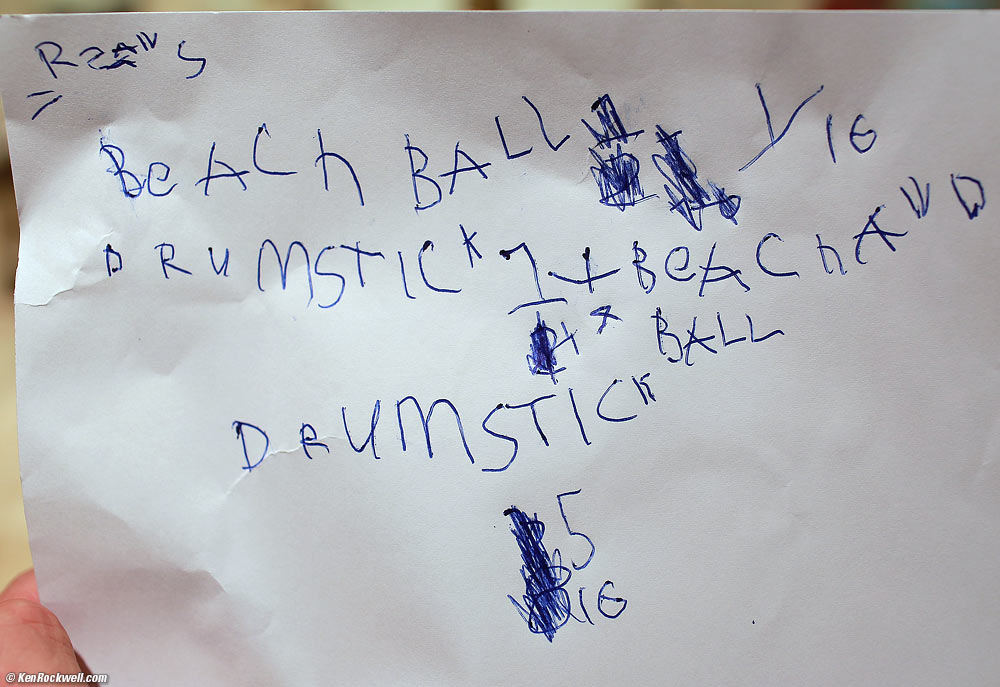 BeACh BALL 1/16
DRUMSTICK 1/4 + BeACh AND
BALL
DRUMSTICK
5
16
© KenRockwell.com